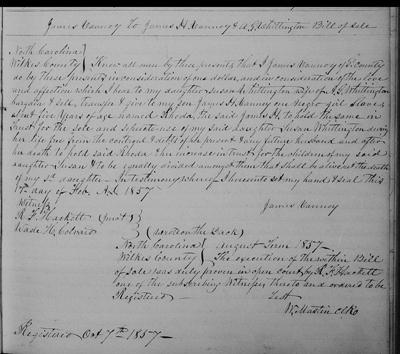 James Vannoy To James H Vannoy & A G Whittington Bill of sale
North Carolina }
Wilkes County } Know all men by these presents that I James Vannoy of sd County
do by these presents in consideration of one dollar, and in consideration of the love
and affection which I bear to my daughter Susan Whittington wife of A. G. Whittington
bargain & sell, transfer & give to my son James H. Vannoy one Negro girl slave,
about five years of age named Rhoda, the said James H. to hold the same in
trust for the sole and seperate use of my said daughter Susan Whittington during
her life free from the controul & debts of her present & any future husband and after
her death to hold said Rhoda & her increase in trust for the children of my said
daughter Susan & to be equally divided amongst them that shall be alive at the death
of my sd daughter — In testimony whereof I hereunto set my hand & seal this
7th day of Feb. A.D. 1857
James Vannoy
Witness
R. F. Hackett (jurat) }
Wade H. Colvard } (wrote on the back)
North Carolina } August Term 1857.
Wilkes County } The execution of the within Bill
of Sale was duly proven in open court by R. F. Hackett
one of the subscribing Witnesses thereto and ordered to be
Registered — Test
W. Mastin Clk
Registered Oct 7th 1857 —